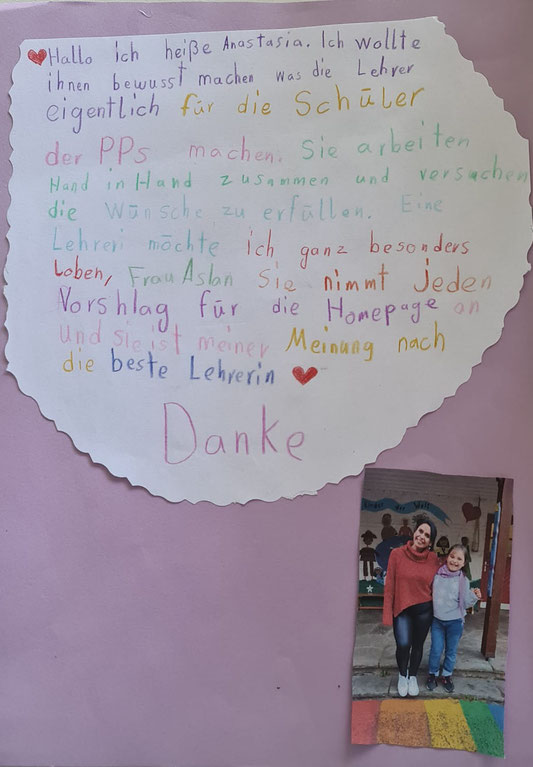 Hallo ich heiße Anastasia. Ich wollte
ihnen bewusst machen was die Lehrer
eigentlich für die Schüler
der PPs machen. Sie arbeiten
Hand in Hand zusammen und versuchen
die Wünsche zu erfüllen. Eine
Lehreri möchte ich ganz besonders
Loben, Frau Aslan Sie nimmt jeden
Vorshlag für die Homepage an
Und sie ist meiner Meinung nach
die beste Lehrerin
Danke
Kinder der Welt